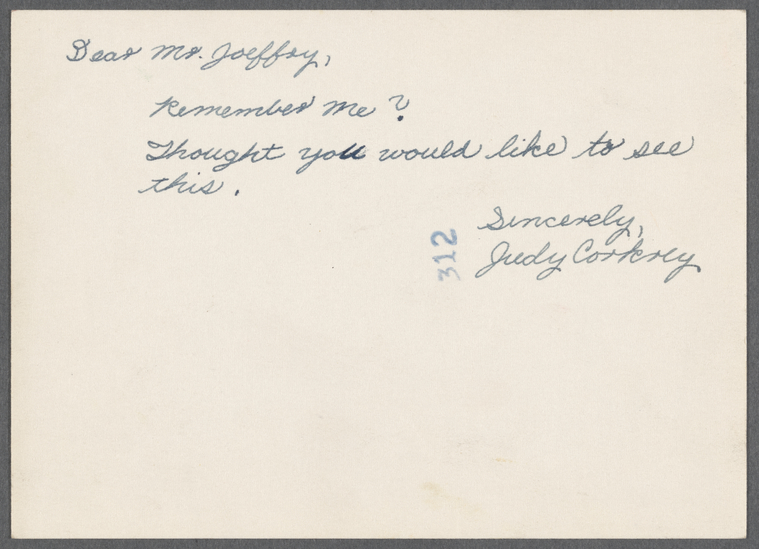 Dear Mr. Joeffry,
Remember me?
Thought you would like to see
this.
Sincerely,
Judy Corkrey
312